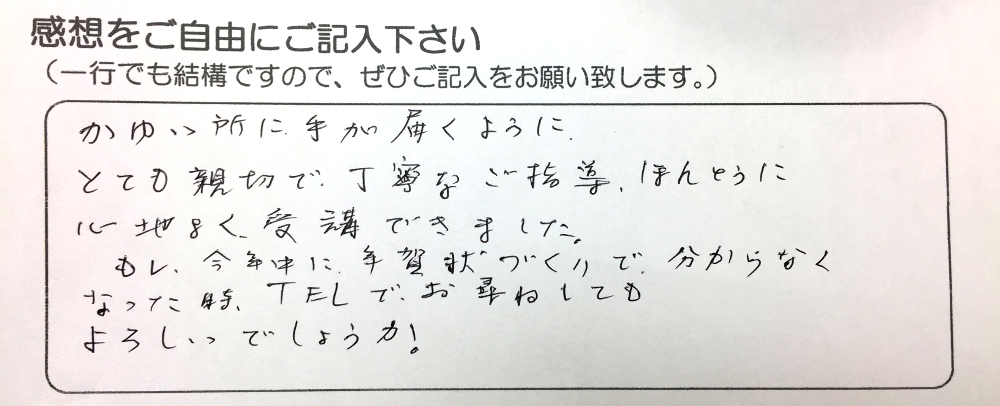 感想をご自由にご記入下さい
（一行でも結構ですので、ぜひご記入をお願い致します。）
かゆい所に、手が届くように、
とても親切で、丁寧なご指導、ほんとうに
心地よく、受講できました。
もし、今年中に、年賀状づくりで、分からなく
なった時、TELで、お尋ねしても
よろしいでしょうか!